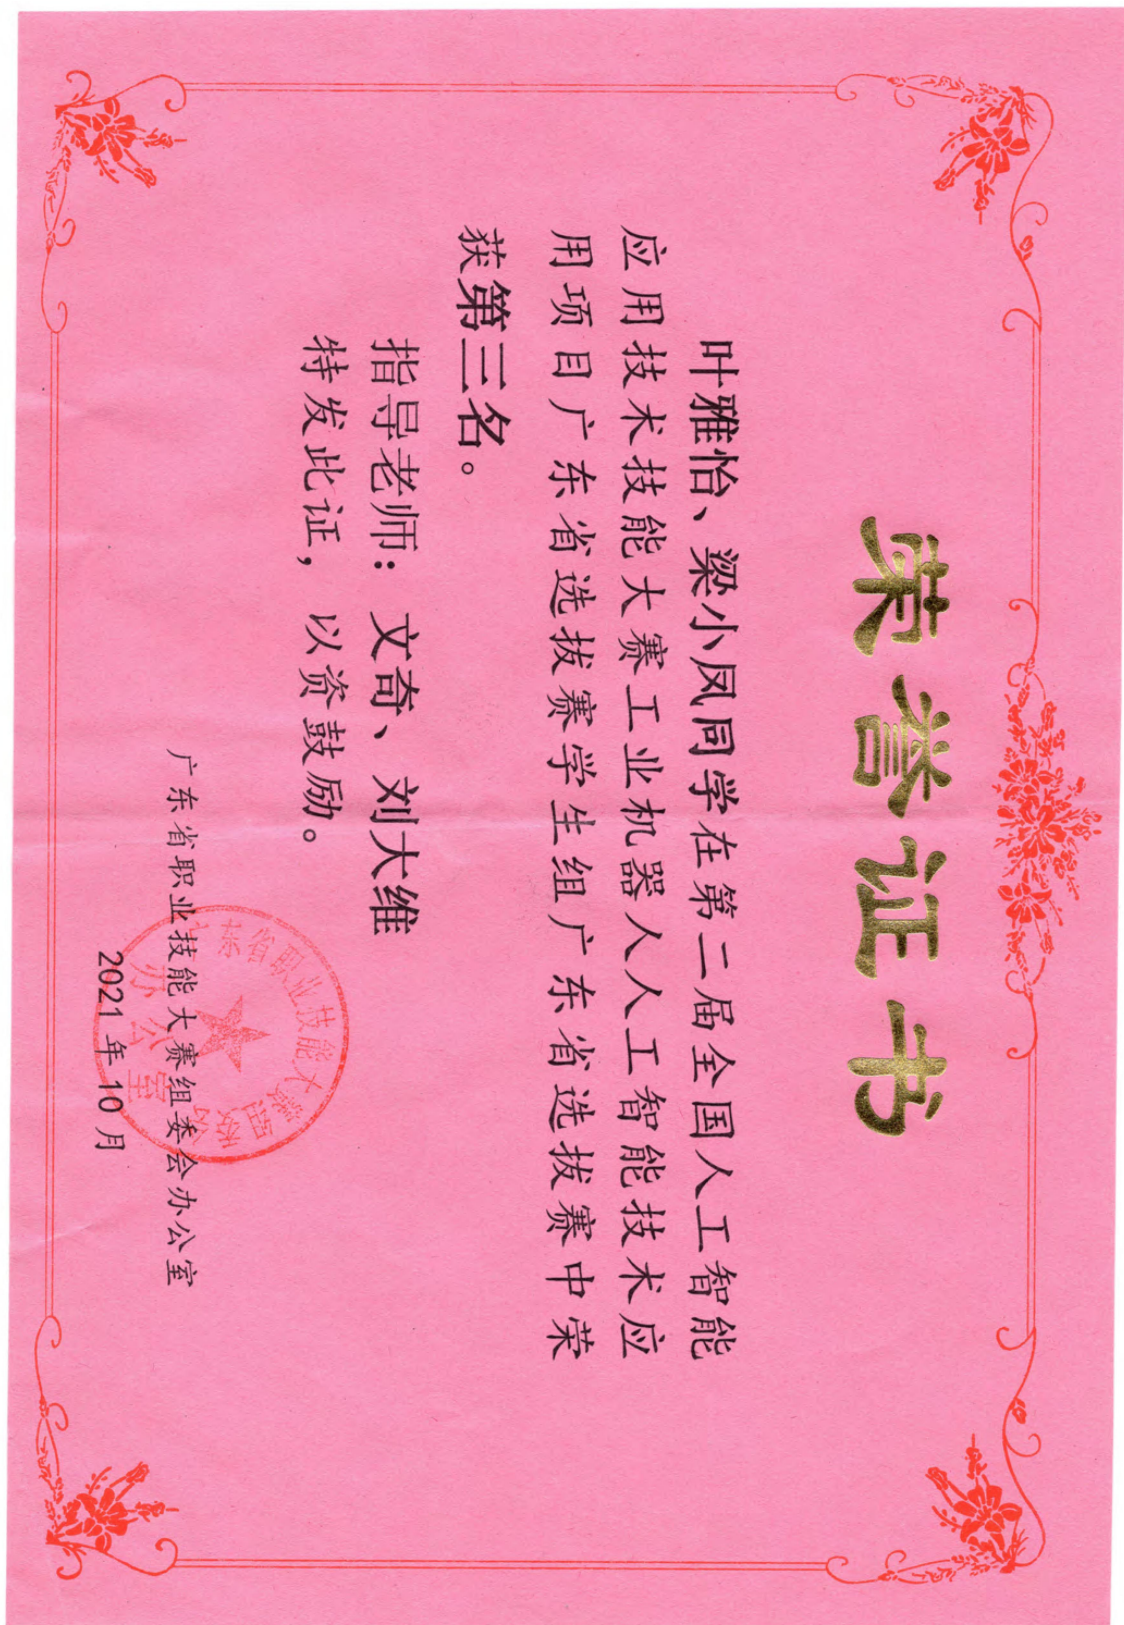 荣誉证书
叶雅怡、梁小凤同学在第二届全国人工智能
应用技术技能大赛工业机器人人工智能技术应
用项目广东省选拔赛学生组广东省选拔赛中荣
获第三名。
指导老师：文奇、刘大维
特发此证，以资鼓励。
广东省职业技能大赛组委会办公室
2021年10月
东省职业技能大赛组委
办公室